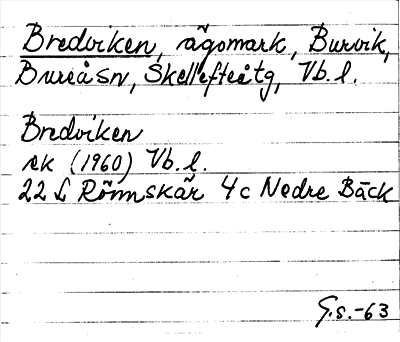 Bredviken, ägomark, Burvik,
Bureåsn, Skellefteåtg, Vb. l.
Bredviken
ek (1960) Vb. l.
22 L Rönnskär 4c Nedre Bäck
G.s.-63